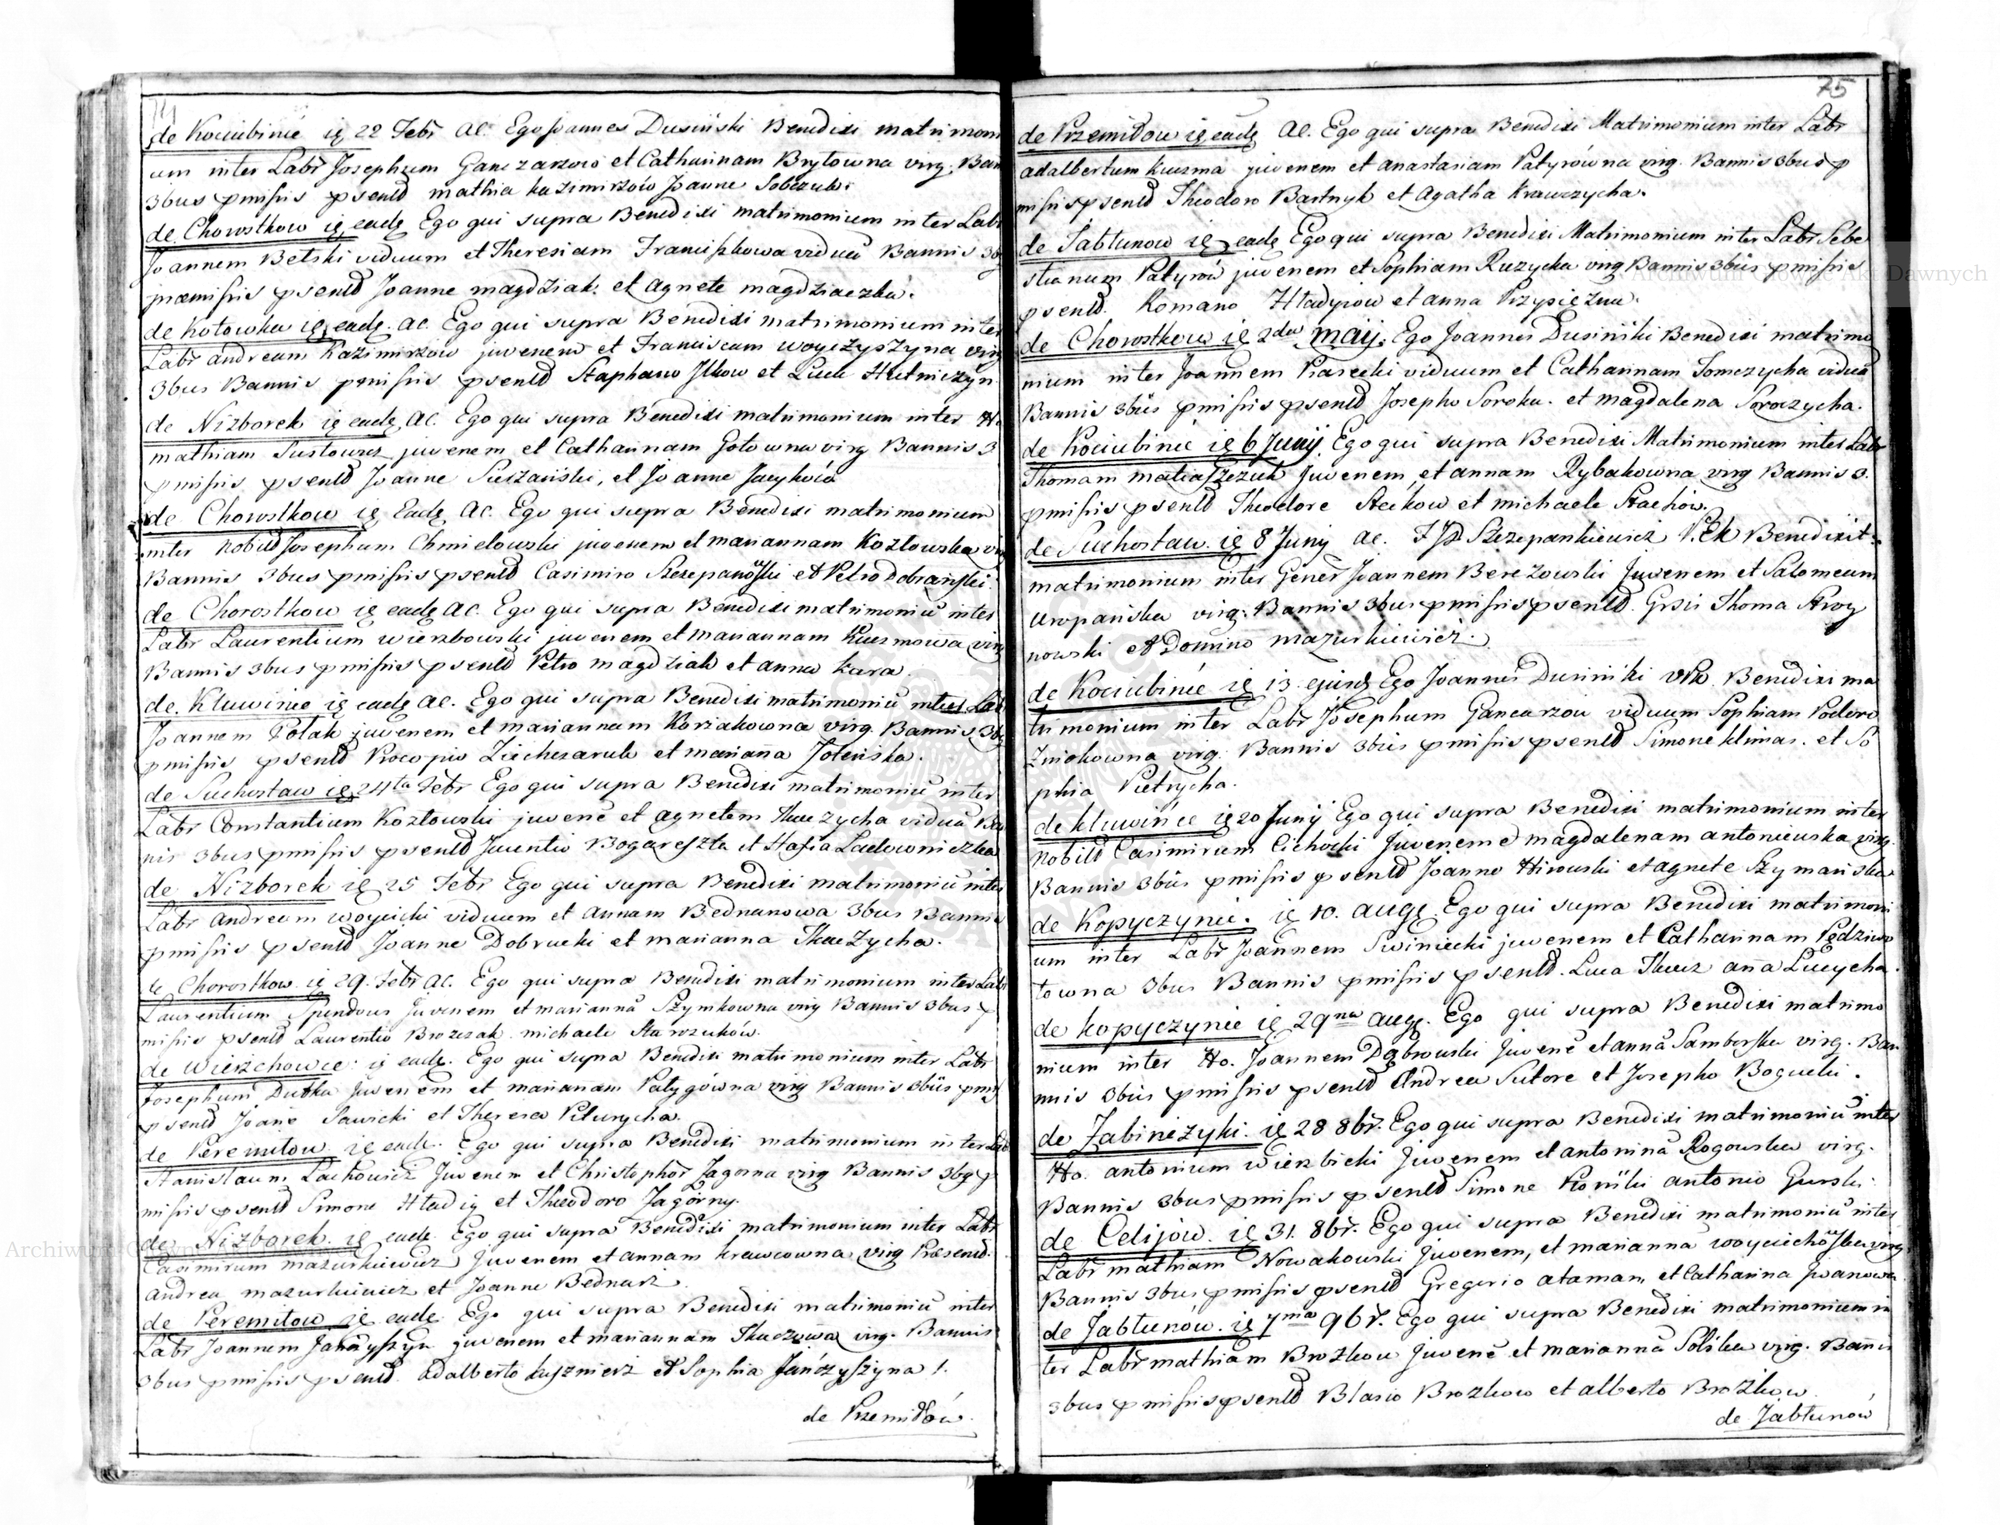 74
de Kociubincé ię 22 Febr ac. Ego Joannes Dusiński Benedixi matrimoni
um inter Labr Josephum Ganczarzow et Catharinam Brytowna virg. Ban
3bus pmissis psentd mathia kazimirzów Joanne Sobczuk.
de Chorostkow ię eadę Ego qui supra Benedixi matrimonium inter Labr
Joannem Betski viduum et Theresiam Franciszkowa viduā Bannis 3bus
præmissis psentd Joanne magdziak. et agnete magdziaczka.
de Kotowka ię eadę. ac. Ego qui supra Benedixi matrimonium inter
Labr andream Kazimirzów juvenem et Franciscam woyczyszyna virg
3bus Bannis pmissis psentd Stephano Ilkow et Luca Hutniczyn
de Nizborek ię eadę ac. Ego qui supra Benedixi matrimonium inter H.
mathiam juvenem et Catharinam Gotowna virg Bannis 3
pmissis psentd Joanne et Joanne Jacyków
de Chorostkow ię Eadę ac. Ego qui supra Benedixi matrimonium
inter nobild Josephum Chmielowski juvenem et mariannam Kozlowska vir
Bannis 3bus pmissis psentd Casimiro Szczepanowski et Petro Dobrański.
de Chorostkow ię eadę ac. Ego qui supra Benedixi matrimoniū inter
Labr Laurentium wierzbowski juvenem et mariannam Kuzmowa virg
Bannis 3bus pmissis psentd Petro magdziak et anna kara.
de Kluwinie ię eadę ac. Ego qui supra Benedixi matrimoniū inter Lab
Joannem Polak juvenem et mariannam Korzakowna virg. Bannis 3b
pmissis psentd Procopio et mariana
de Suchostaw ię 24ta Febr Ego qui supra Benedixi matrimoniū inter
Labr Constantium Kozlowski juvenē et agnetem Tkaczycha viduā Ban
nis 3bus pmissis psentd Bogareszta et Ladowniczka
de Nizborek ię 25 Febr Ego qui supra Benedixi matrimoniū inter
Labr andream woycicki viduum et annam Bednarowa 3bus Bannis
pmissis psentd Joanne Dobrucki et marianna Tkaczycha.
de Chorostkow ię 29. Febr ac. Ego qui supra Benedixi matrimonium inter Labr
Laurentium juvenem et mariannā Szymkowna virg Bannis 3bus p
missis psentd Laurentio Brozczak michaele
de Wierzchowce: ię eadę. Ego qui supra Benedixi matrimonium inter Labr
Josephum Dutka juvenem et marianam Patygówna virg Bannis 3bus pmis
psentd Joane Sawicki et Theresa
de Peremitow ię eadę. Ego qui supra Benedixi matrimonium inter Lab
Stanislaum Lachowicz juvenem et Zagorna virg Bannis 3bus p
missis psentd Simone Hladiy et Theodoro Zagórny.
de Nizborek. ię eadę. Ego qui supra Benedixi matrimonium inter Labr
Casimirum mazurkiewicz juvenem et annam krawcowna virg Præsentd.
andrea mazurkiewicz et Joanne Bednarz.
de Peremitow ię eadę. Ego qui supra Benedixi matrimoniū inter
Labr Joannem juvenem et mariannam virg. Bannis
3bus pmissis psentd. adalberto kuszmierz et Sophia
de Przemiłów.
75
de Przemiłow ię eadę ac. Ego qui supra Benedixi Matrimonium inter Labr
adalbertum kuzma juvenem et anastasiam Patyrówna virg. Bannis 3bus p
missis psentd Theodoro Bartnyk et agatha Krawczycha.
de Jabłunow ię eadę Ego qui supra Benedixi Matrimonium inter Labr Seba
stianum Patyrów juvenem et Sophiam Ruzycka virg Bannis 3bus pmissis
psentd. Romano Hladyiow et anna
de Chorostkow ię 2da maij. Ego Joannes Dusiński Benedixi matrimo
nium inter Joannem Piasecki viduum et Catharinam Tomczycha viduā
Bannis 3bus pmissis psentd Josepho Soroka. et magdalena Soroczycha.
de Kociubincé ię 6 Junij. Ego qui supra Benedixi Matrimonium inter Labr
Thomam matiaszczuk juvenem, et annam Rybakowna virg Bannis 3.
pmissis psentd Theodore Steckow et michaele Stachów.
de Suchostaw. ię 8 Junij ac. Szczepankiewicz Benedixit
matrimonium inter Gener Joannem Berezowski juvenem et Salomeam
Uropańska virg: Bannis 3bus pmissis psentd. Grsis Thoma
nowski et Domino mazurkiewicz.
de Kociubincé ię 13. ejusd Ego Joannes Dusiński Benedixi ma
trimonium inter Labr Josephum Gancarzow viduum Sophiam
virg. Bannis 3bus pmissis psentd Simone klimas. et So
phia Pietrycha.
de kluwińce ię 20 Junij Ego qui supra Benedixi matrimonium inter
nobild Casimirum Cichocki juvenem et magdalenam antoniewska virg.
Bannis 3bus pmissis psentd Joanne Hirowski et agnete Szymańska
de Kopyczynic. ię 10. augę Ego qui supra Benedixi matrimoni
um inter Labr Joannem Swiniecki juvenem et Catharinam Pędziwo
towna 3bus Bannis pmissis psentd. Luca Tkacz aña Lucycha.
de kopyczynic ię 29na augę. Ego qui supra Benedixi matrimo
nium inter Ho. Joannem Dąbrowski juvenē et annā Samborska virg. Ban
nis 3bus pmissis psentd andrea Sutore et Josepho Bogucki.
de Zabinczyki. ię 28 8br. Ego qui supra Benedixi matrimoniū inter
Ho. antonium wierzbicki juvenem et antoninā Rogowska virg.
Bannis 3bus pmissis psentd Simone antonio Gurski.
de Celijów. ię 31. 8br. Ego qui supra Benedixi matrimoniū inter
Labr mathiam Nowakowski juvenem, et marianna woyciechowska virg.
Bannis 3bus pmissis psentd Gregorio ataman et Catharina Iwanowa
de Jabłunów. ię 7ma 9br. Ego qui supra Benedixi matrimonium in
ter Labr mathiam Brozkow juvenē et mariannā Solska virg. Bann
3bus pmissis psentd Blasio Brozkow et alberto Brozkow
de Jabłunów